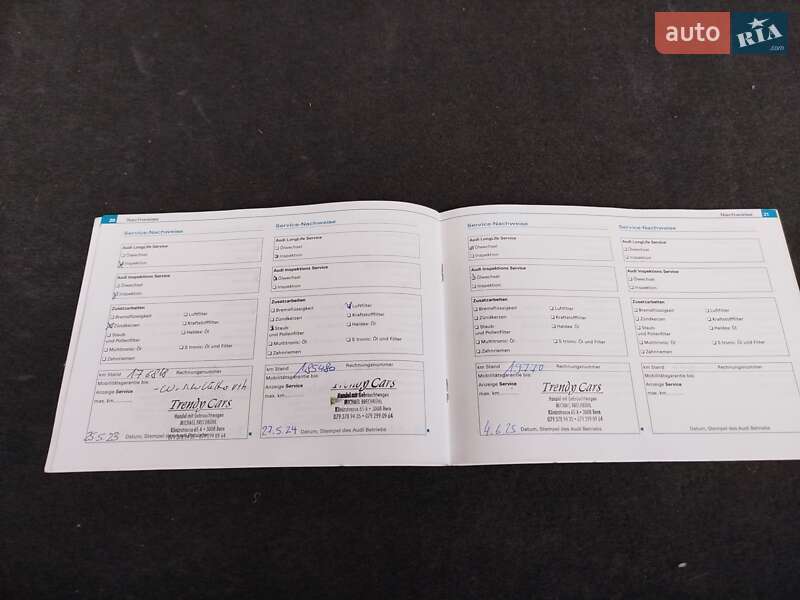 auto RIA.com
20 Nachweise
Service-Nachweise
Audi LongLife Service
Ölwechsel
Inspektion
Audi Inspektions Service
Ölwechsel
Inspektion
Zusatzarbeiten
Bremsflüssigkeit
Luftfilter
Zündkerzen
Kraftstofffilter
Staub- und Pollenfilter
Haldex: Öl
Multitronic: Öl
S tronic: Öl und Filter
Zahnriemen
km Stand
Rechnungsnummer
Mobilitätsgarantie bis:
Anzeige Service
max. km
Trendy Cars
Handel mit Gebrauchtwagen
25.5.23 Datum, Stempel des Audi Betriebs
Service-Nachweise
Audi LongLife Service
Ölwechsel
Inspektion
Audi Inspektions Service
Ölwechsel
Inspektion
Zusatzarbeiten
Bremsflüssigkeit
Luftfilter
Zündkerzen
Kraftstofffilter
Staub- und Pollenfilter
Haldex: Öl
Multitronic: Öl
S tronic: Öl und Filter
Zahnriemen
km Stand 185480 Rechnungsnummer
Mobilitätsgarantie bis:
Anzeige Service
max. km
Trendy Cars
Handel mit Gebrauchtwagen
27.5.24 Datum, Stempel des Audi Betriebs
Nachweise 21
Service-Nachweise
Audi LongLife Service
Ölwechsel
Inspektion
Audi Inspektions Service
Ölwechsel
Inspektion
Zusatzarbeiten
Bremsflüssigkeit
Luftfilter
Zündkerzen
Kraftstofffilter
Staub- und Pollenfilter
Haldex: Öl
Multitronic: Öl
S tronic: Öl und Filter
Zahnriemen
km Stand
Rechnungsnummer
Mobilitätsgarantie bis:
Anzeige Service
max. km
Trendy Cars
Handel mit Gebrauchtwagen
4.6.25 Datum, Stempel des Audi Betriebs
Service-Nachweise
Audi LongLife Service
Ölwechsel
Inspektion
Audi Inspektions Service
Ölwechsel
Inspektion
Zusatzarbeiten
Bremsflüssigkeit
Luftfilter
Zündkerzen
Kraftstofffilter
Staub- und Pollenfilter
Haldex: Öl
Multitronic: Öl
S tronic: Öl und Filter
Zahnriemen
km Stand
Rechnungsnummer
Mobilitätsgarantie bis:
Anzeige Service
max. km
Datum, Stempel des Audi Betriebs